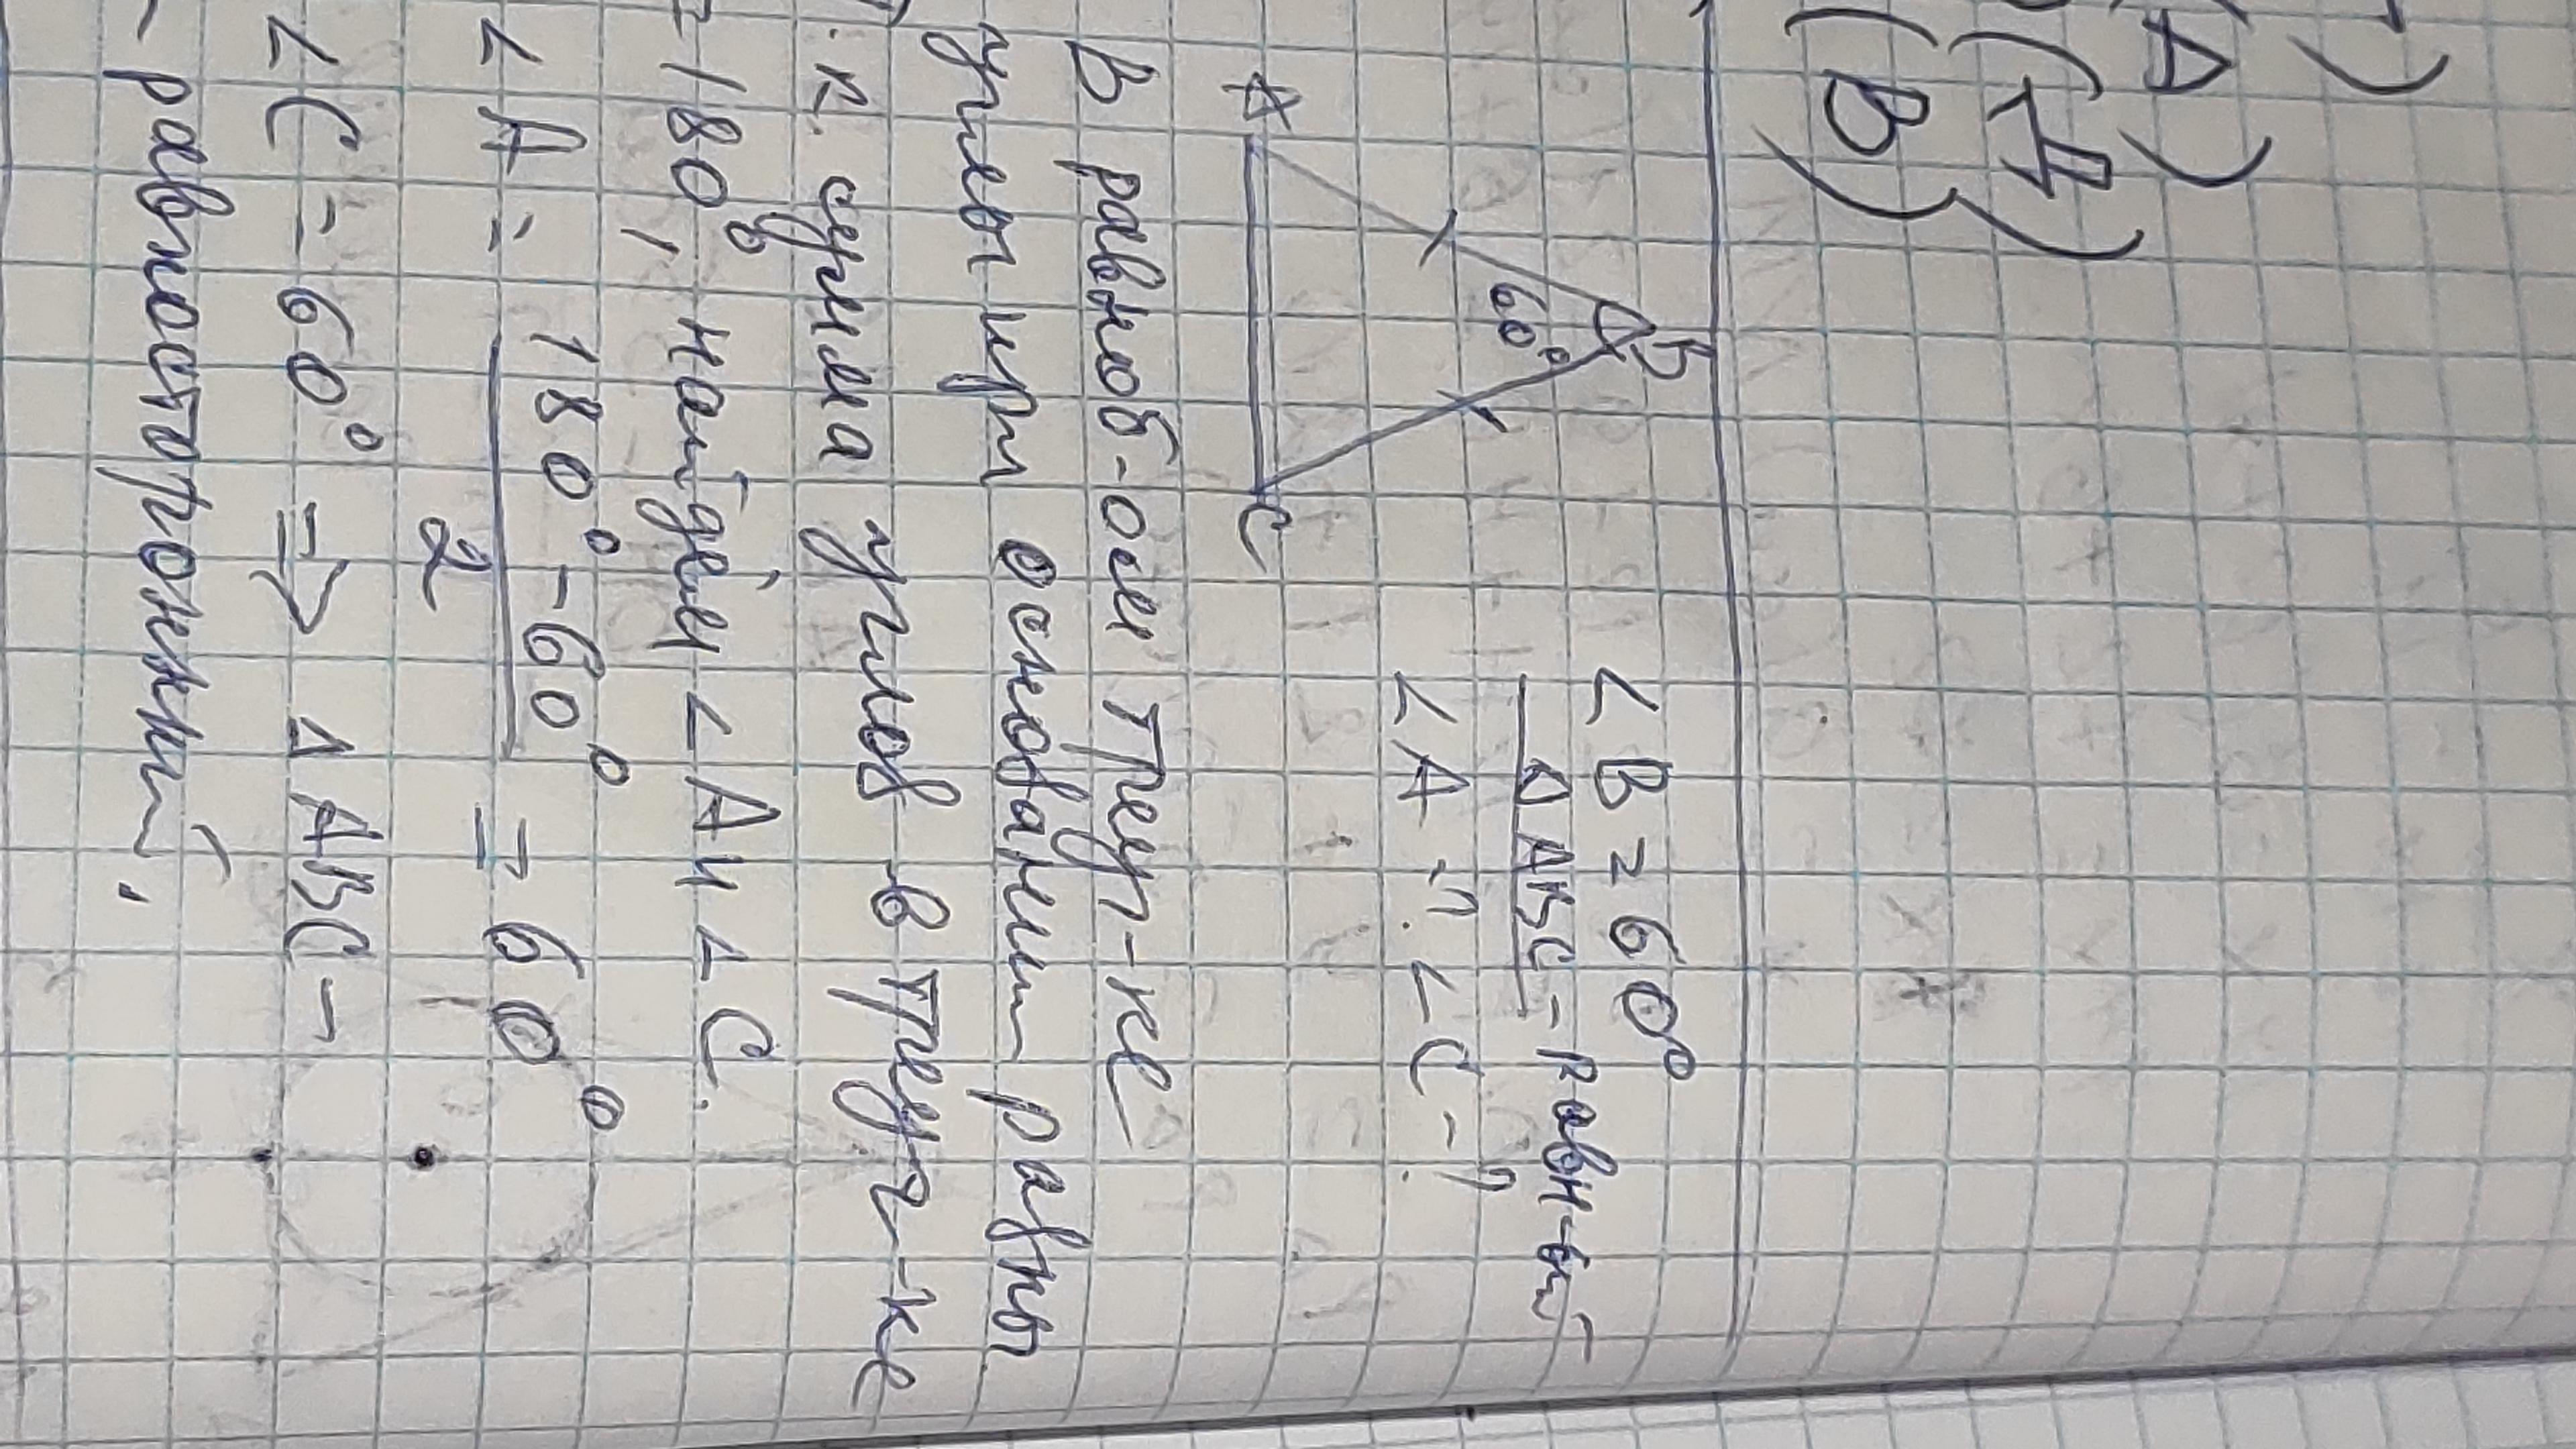 Г)
(А)
(Д)
(В)
B
60°
A
C
∠B = 60°
△ABC - равн-ый
∠A-? ∠C-?
В равноб-ом треуг-ке
углы при основании равны
т.к. сумма углов в треуг-ке
= 180°, найдём ∠A и ∠C.
∠A = 180° - 60° / 2 = 60°
∠C = 60° ⇒ △ABC -
- равносторонний.